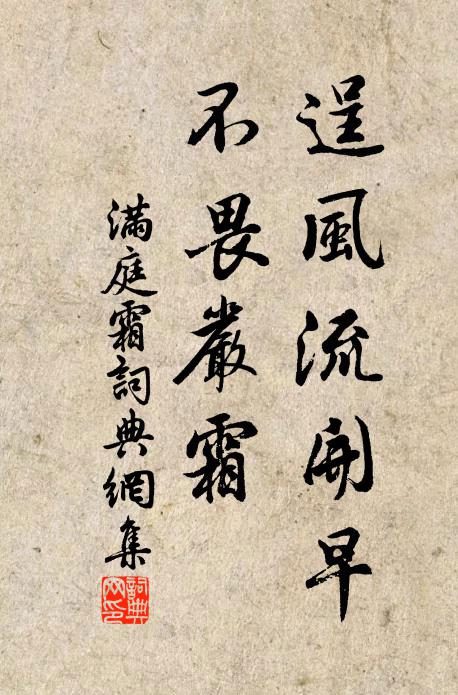 逞風流開早
不畏嚴霜
滿庭霜詞典網集
詞典網印